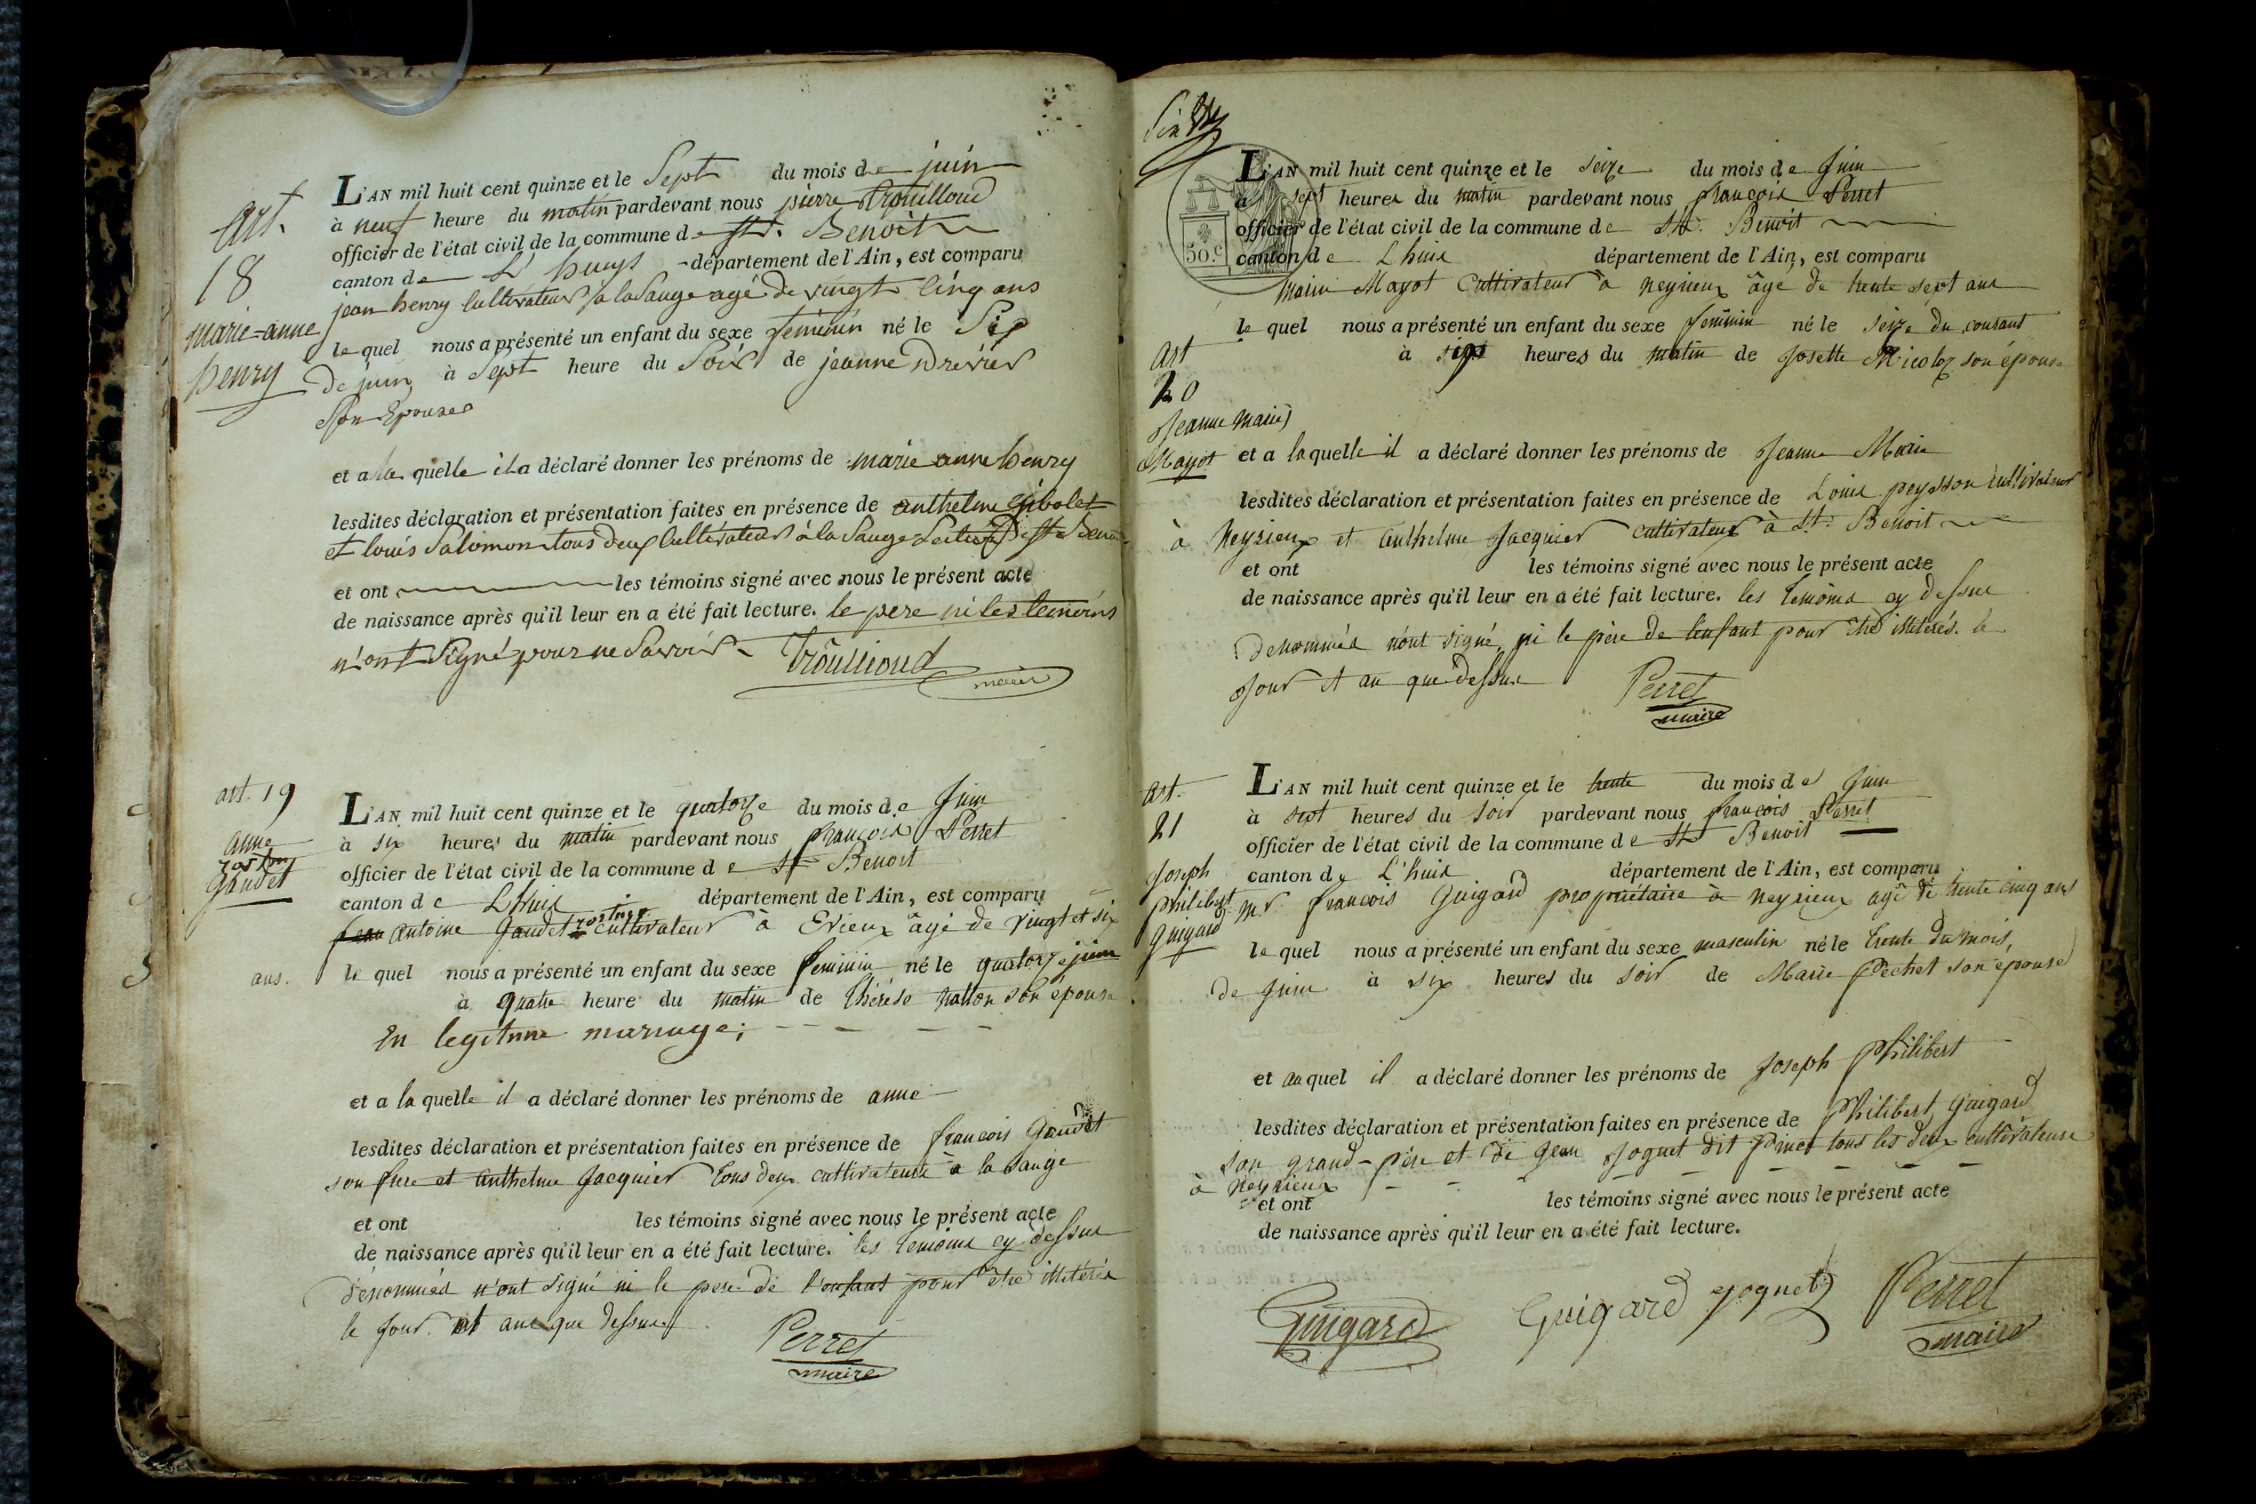 art.
18
marie=anne
henry
L'AN mil huit cent quinze et le Sept du mois de juin
à neuf heure du matin pardevant nous pierre Trouilloud
officier de l'état civil de la commune de St. Benoit
canton de L'huys département de l'Ain, est comparu
jean henry Cultivateur a la Sauge agé de vingt cinq ans
le quel nous a présenté un enfant du sexe feminin né le Sip
De juin à Sept heure du Soir de jeanne Drevier
Son Epouse
et a la quelle il a déclaré donner les prénoms de marie anne henry
lesdites déclaration et présentation faites en présence de anthelme
et louis Salomon tous deux Cultivateur à la Sauge de St
et ont les témoins signé avec nous le présent acte
de naissance après qu'il leur en a été fait lecture. le pere ni les temoins
n'ont Signé pour ne Savoir
Trouilloud
maire
art. 19
anne
gaudet
L'AN mil huit cent quinze et le quatorze du mois de Juin
à six heures du matin pardevant nous françois Perret
officier de l'état civil de la commune de St Benoit
canton de L'huis département de l'Ain, est comparu
jean antoine Gaudet cultivateur à Evieux âgé de vingt et six
ans. le quel nous a présenté un enfant du sexe feminin né le quatorze juin
à quatre heure du matin de thérèse son épouse
en legitime mariage;
et a la quelle il a déclaré donner les prénoms de anne
lesdites déclaration et présentation faites en présence de francois Gaudet
son frere et anthelme Jacquier tous deux cultivateurs à la sauge
et ont les témoins signé avec nous le présent acte
de naissance après qu'il leur en a été fait lecture. les temoins cy dessus
dénommés n'ont signé ni le pere de l'enfant pour être illitérés
le jour et an que dessus
Perret
maire
50.c
L'AN mil huit cent quinze et le seize du mois de Juin
à sept heures du matin pardevant nous françois Perret
officier de l'état civil de la commune de St. Benoit
canton de Lhuis département de l'Ain, est comparu
Mayot Cultivateur à neyrieux âgé de trente sept ans
le quel nous a présenté un enfant du sexe feminin né le seize du courant
à six heures du matin de Josette Nicolas son épouse
art
20
Jeanne Marie
Mayot
et a la quelle il a déclaré donner les prénoms de Jeanne Marie
lesdites déclaration et présentation faites en présence de Louis peysson cultivateur
à Neyrieux et anthelme Jacquier cultivateur à St. Benoit
et ont les témoins signé avec nous le présent acte
de naissance après qu'il leur en a été fait lecture. les temoins cy dessus
denommés n'ont signé, ni le père de l'enfant pour être illitérés. le
Jour et an que dessus
Perret
maire
art.
21
Joseph
philibert
Guigard
L'AN mil huit cent quinze et le trente du mois de Juin
à sept heures du soir pardevant nous francois Perret
officier de l'état civil de la commune de St Benoit
canton de L'huis département de l'Ain, est comparu
mr. francois Guigard propriétaire à neyrieux agé de trente cinq ans
le quel nous a présenté un enfant du sexe masculin né le trente du mois,
de juin à six heures du soir de Marie Pechet son épouse
et au quel il a déclaré donner les prénoms de Joseph Philibert
lesdites déclaration et présentation faites en présence de Philibert Guigard
son grand-père et de Jean Jognet dit pinet tous les deux cultivateurs
à neyrieux
et ont les témoins signé avec nous le présent acte
de naissance après qu'il leur en a été fait lecture.
Guigard Guigard Jognet Perret
maire